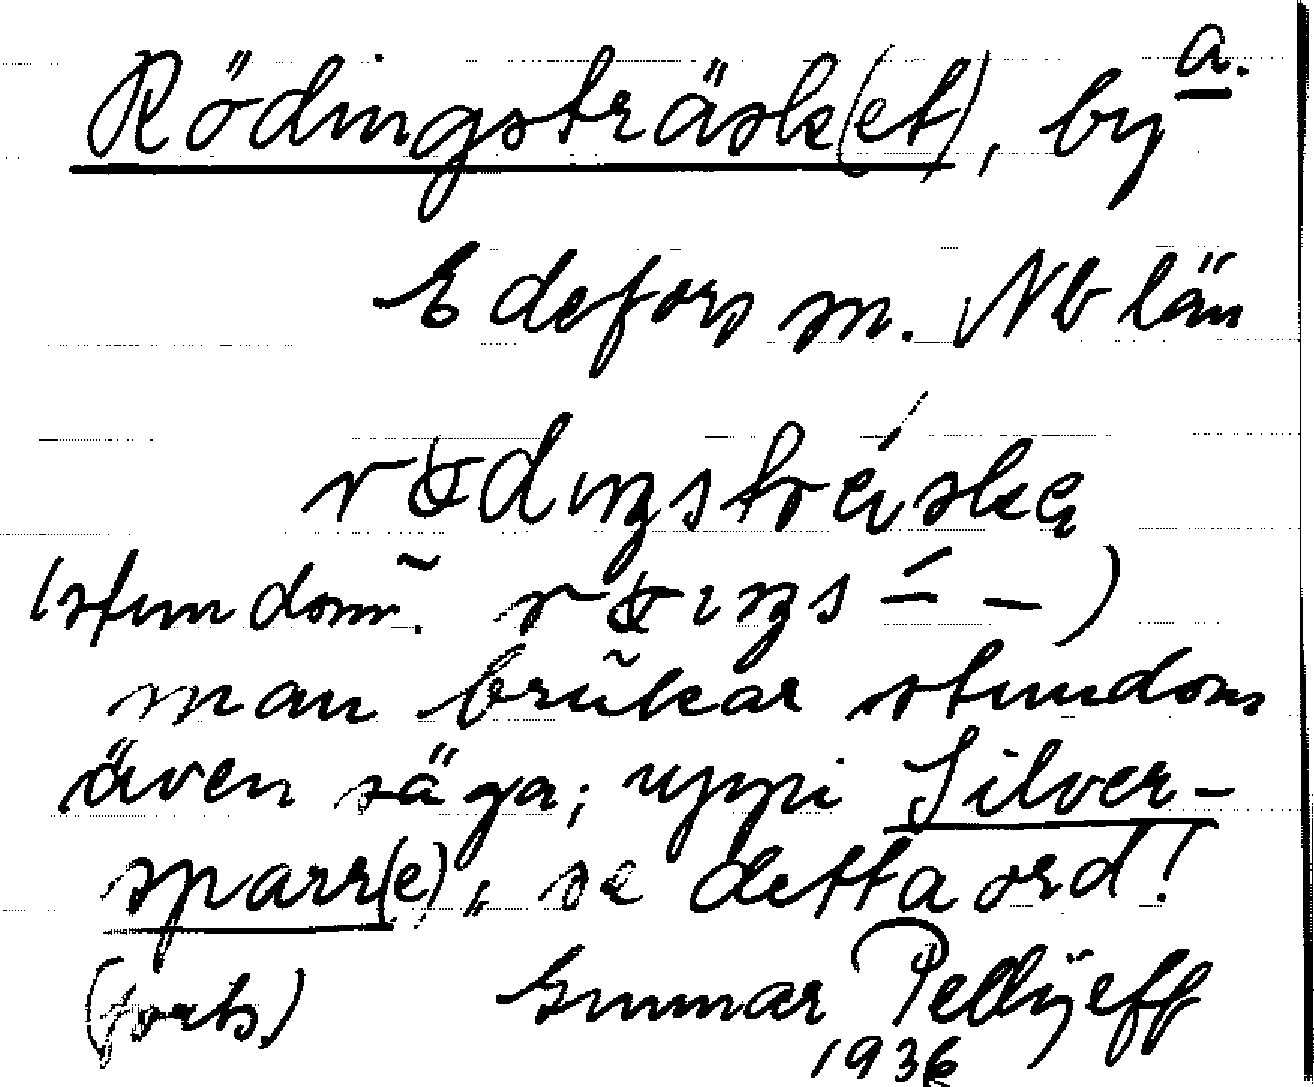 Rödingsträsk(et), by a.
Edefors sn. Nb län
(stundom
man brukar stundom
även säga; uppi Silver-
sparr(e), se detta ord!
(forts)
Gunnar Pellijeff
1936